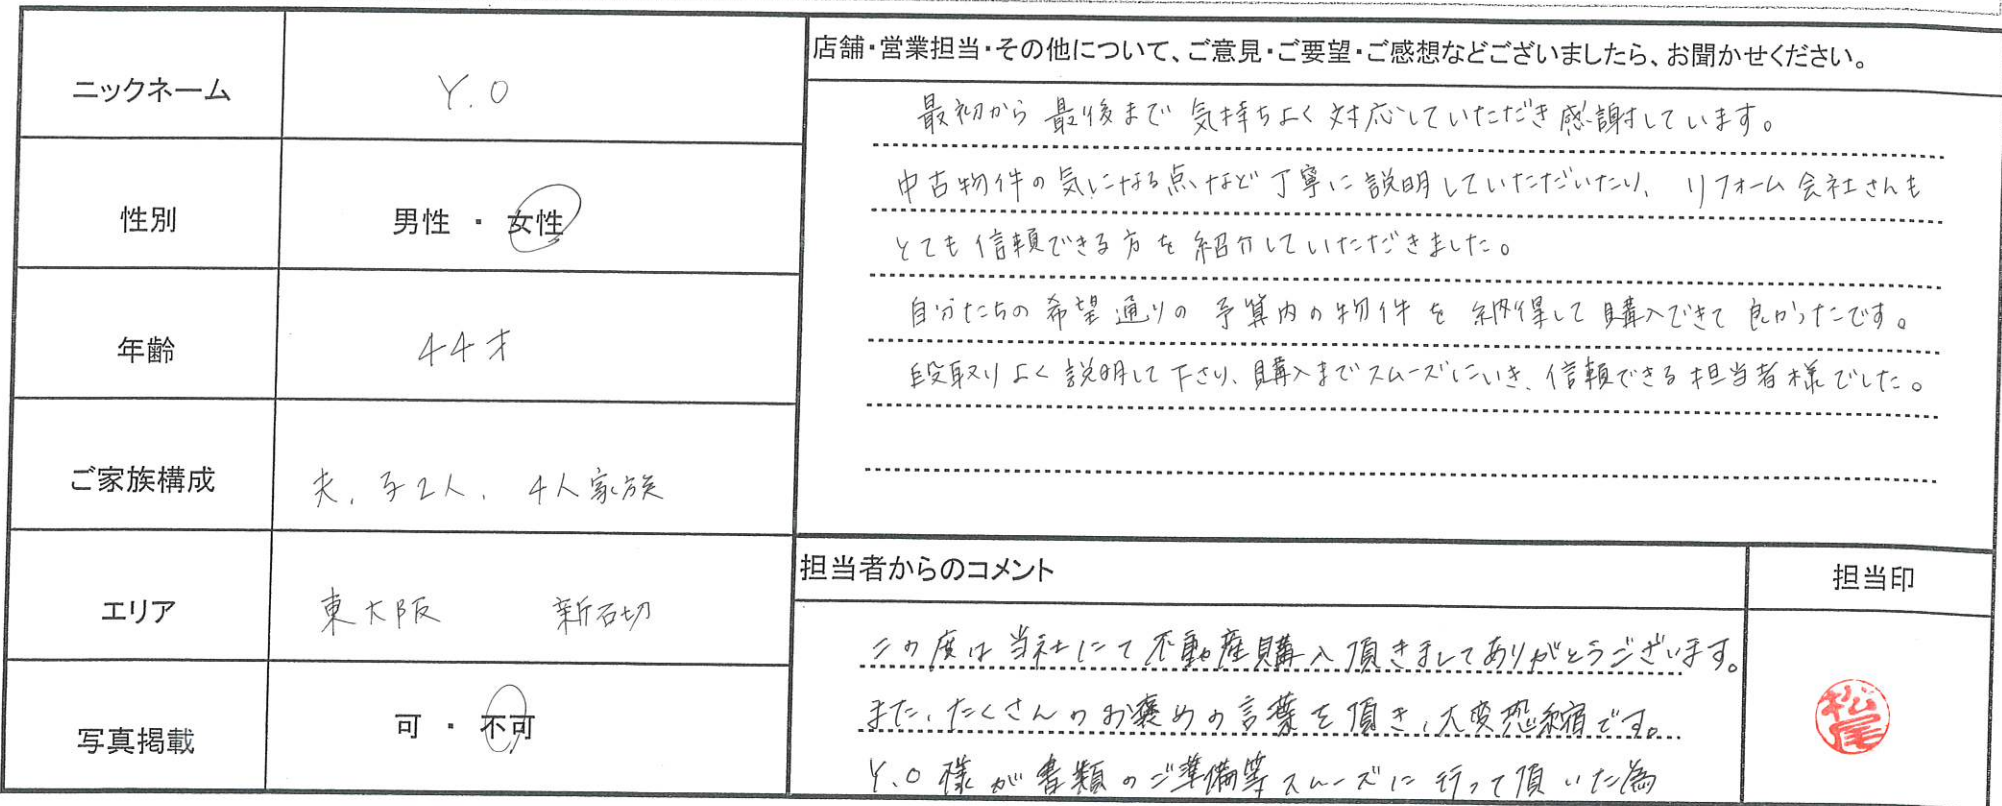 ニックネーム
Y.O
性別
男性 ・ 女性
年齢
44才
ご家族構成
夫、子2人、4人家族
エリア
東大阪 新石切
写真掲載
可 ・ 不可
店舗・営業担当・その他について、ご意見・ご要望・ご感想などございましたら、お聞かせください。
最初から最後まで気持ちよく対応していただき感謝しています。
中古物件の気になる点など丁寧に説明していただいたり、リフォーム会社さんも
とても信頼できる方を紹介していただきました。
自分たちの希望通りの予算内の物件を納得して購入できて良かったです。
段取りよく説明して下さり、購入までスムーズにいき、信頼できる担当者様でした。
担当者からのコメント
この度は当社にて不動産購入頂きましてありがとうございます。
また、たくさんのお褒めの言葉を頂き、大変恐縮です。
Y.O様が書類のご準備等スムーズに行って頂いた為
担当印
松尾